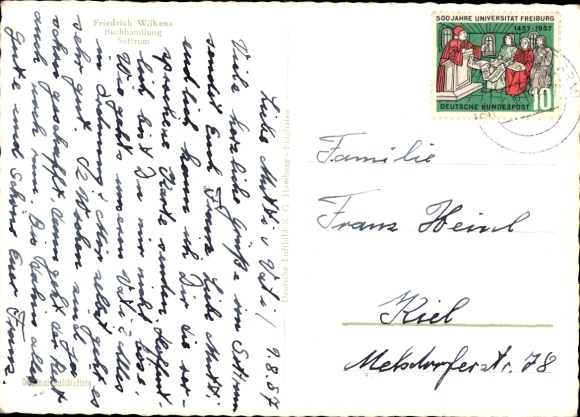 Friedrich Wilkens
Buchhandlung
Sottrum
Liebe Mutti u Vati! 9.8.57
Viele herzliche Grüße in Sottrum
sendet Euch Franz. Liebe Mutti,
endlich kann ich Dir die ver-
sprochene Karte senden. Hoffent-
lich bist Du mir nicht böse.
Wie geht's unseren Vati? Alles
in Ordnung? Mir selbst geht es
sehr gut. 12 Wochen sind ja
schon geschafft, dann geht der Rest
auch noch rum. Bis dahin alles
Gute und Schöne Euer Franz.
Original-Luftbildfoto
Deutsche Luftbild K. G. Hamburg - Flughafen
500 JAHRE UNIVERSITÄT FREIBURG
1457-1957
10
DEUTSCHE BUNDESPOST
Familie
Franz Heinl
Kiel
Metzdorferstr. 78